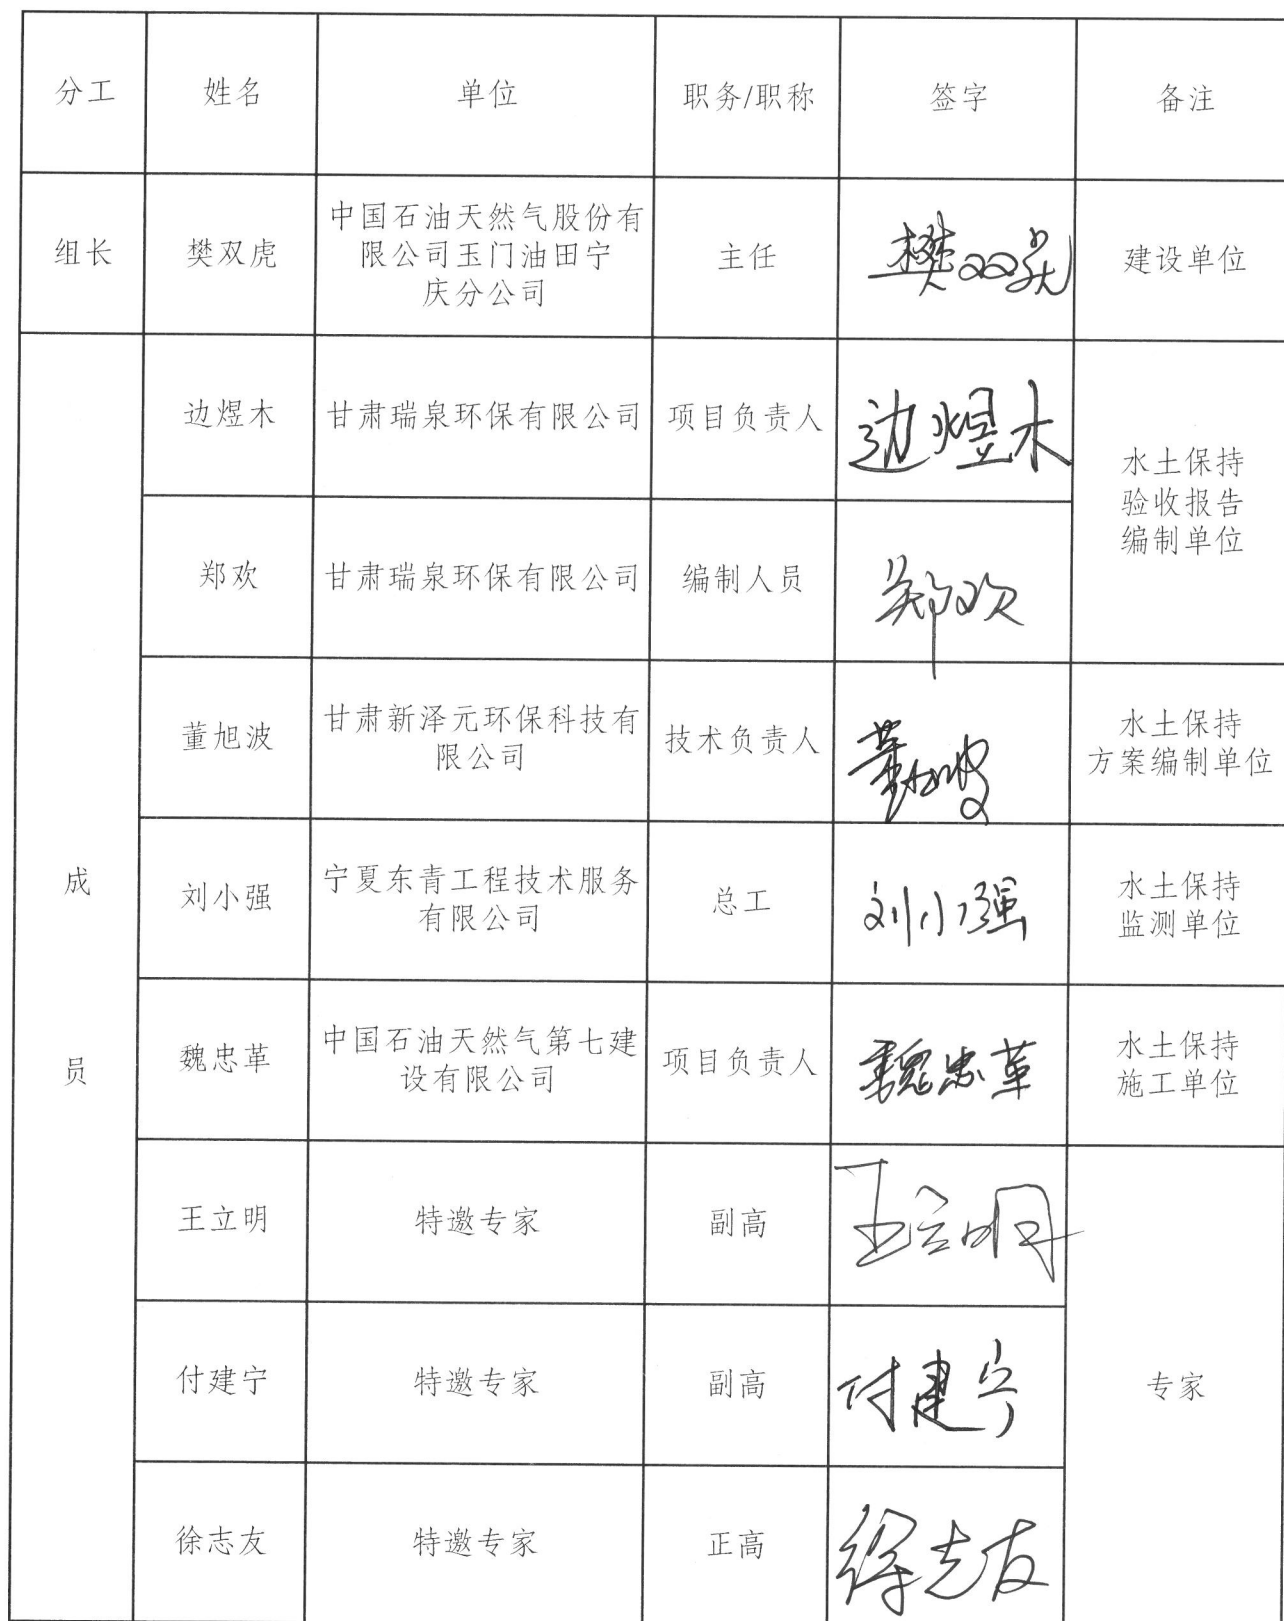 分工 姓名 单位 职务/职称 签字 备注
组长 樊双虎
中国石油天然气股份有
限公司玉门油田宁
庆分公司
主任 樊双虎 建设单位
成
员
边煜木 甘肃瑞泉环保有限公司 项目负责人 边煜木
水土保持
验收报告
编制单位
郑欢 甘肃瑞泉环保有限公司 编制人员 郑欢
董旭波
甘肃新泽元环保科技有
限公司
技术负责人 董旭波
水土保持
方案编制单位
刘小强
宁夏东青工程技术服务
有限公司
总工 刘小强
水土保持
监测单位
魏忠革
中国石油天然气第七建
设有限公司
项目负责人 魏忠革
水土保持
施工单位
王立明 特邀专家 副高 王立明
付建宁 特邀专家 副高 付建宁 专家
徐志友 特邀专家 正高 徐志友